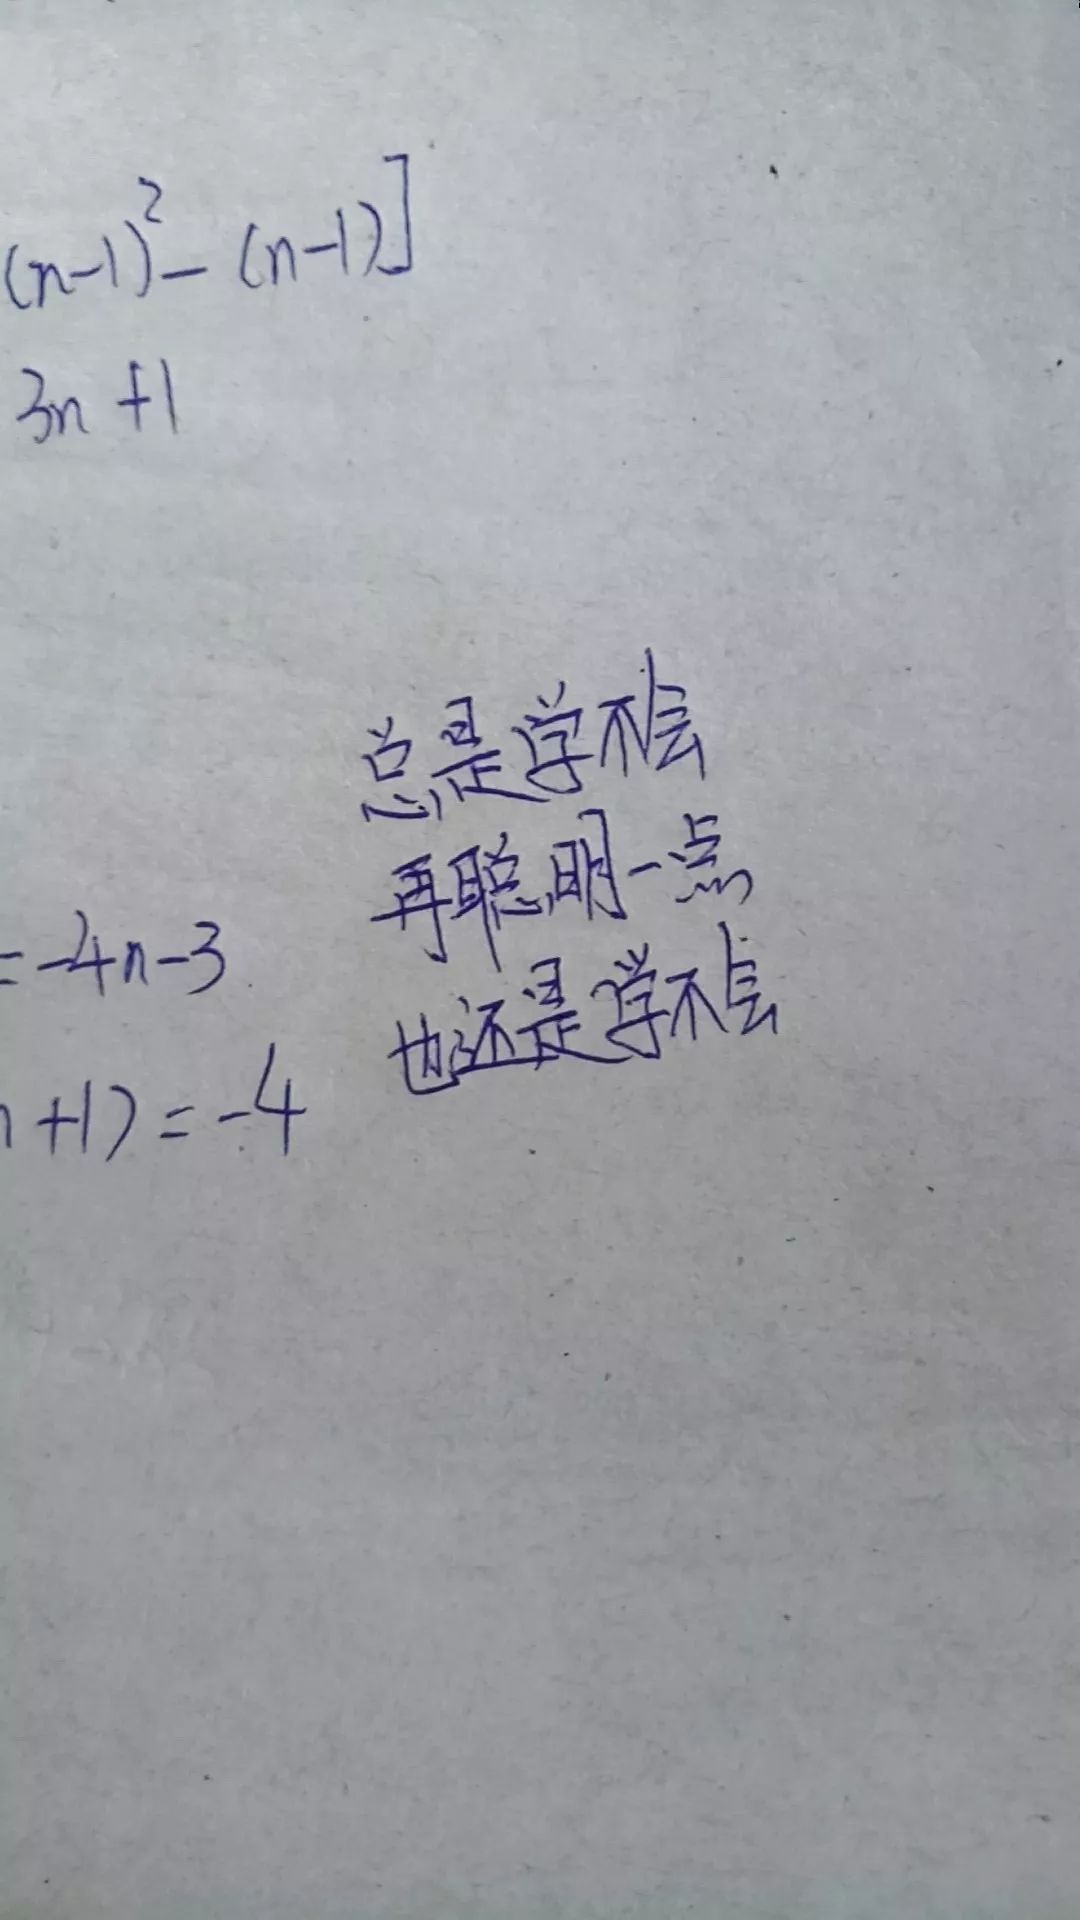 (n-1)²-(n-1)]
3n+1
总是学不会
再聪明一点
也还是学不会
=-4n-3
+1)=-4